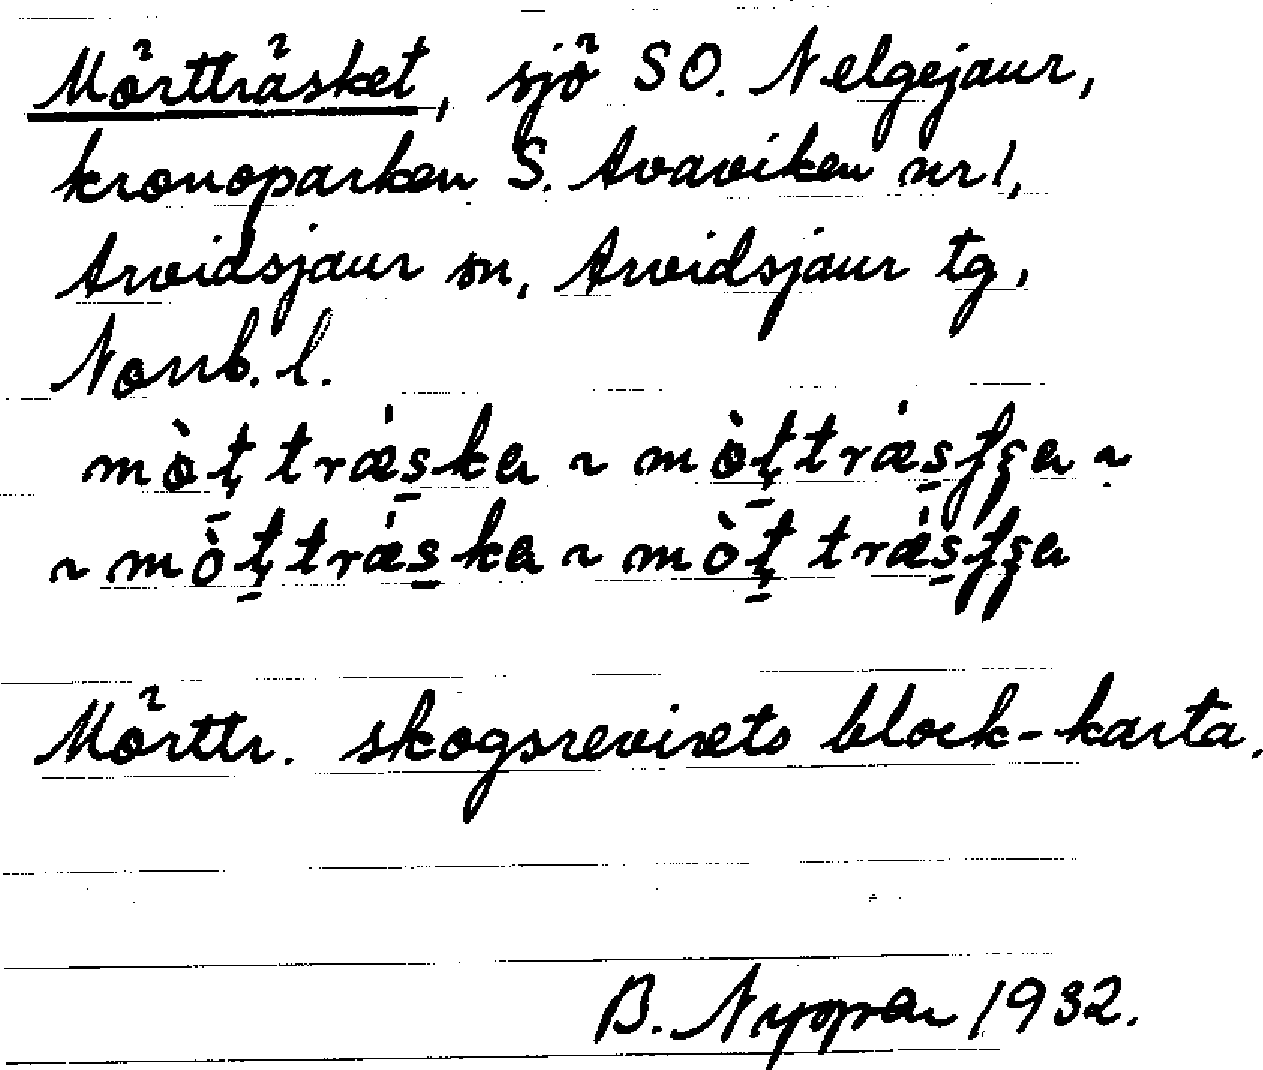 Mörtträsket, sjö SO. Nelgejaur,
kronoparken S. Avaviken nr 1,
Arvidsjaur sn, Arvidsjaur tg,
Norrb. l.
Mörttr. skogsrevirets block-karta.
B. Nyman 1932.